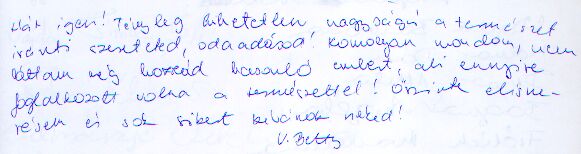 Hát igen! Tényleg hihetetlen nagyságú a természet
iránti szereteted, odaadásod! Komolyan mondom, nem
láttam még hozzád hasonló embert, aki ennyire
foglalkozott volna a természettel! Őszinte elisme-
résem és sok sikert kívánok neked!
V. Betty